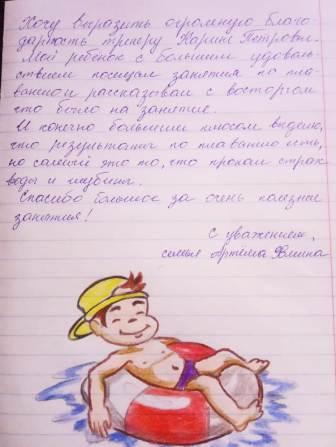 Хочу выразить огромную благо
дарность тренеру Карине Петровне.
Мой ребёнок с большим удоволь-
ствием посещал занятия по пла-
ванию и рассказывал с восторгом
что было на занятие.
И конечно большим плюсом виделю,
что результаты по плаванию есть,
но самый это то, что пропал страх
воды и глубины.
Спасибо большое за очень полезные
занятия!
С уважением,
семья Артёма